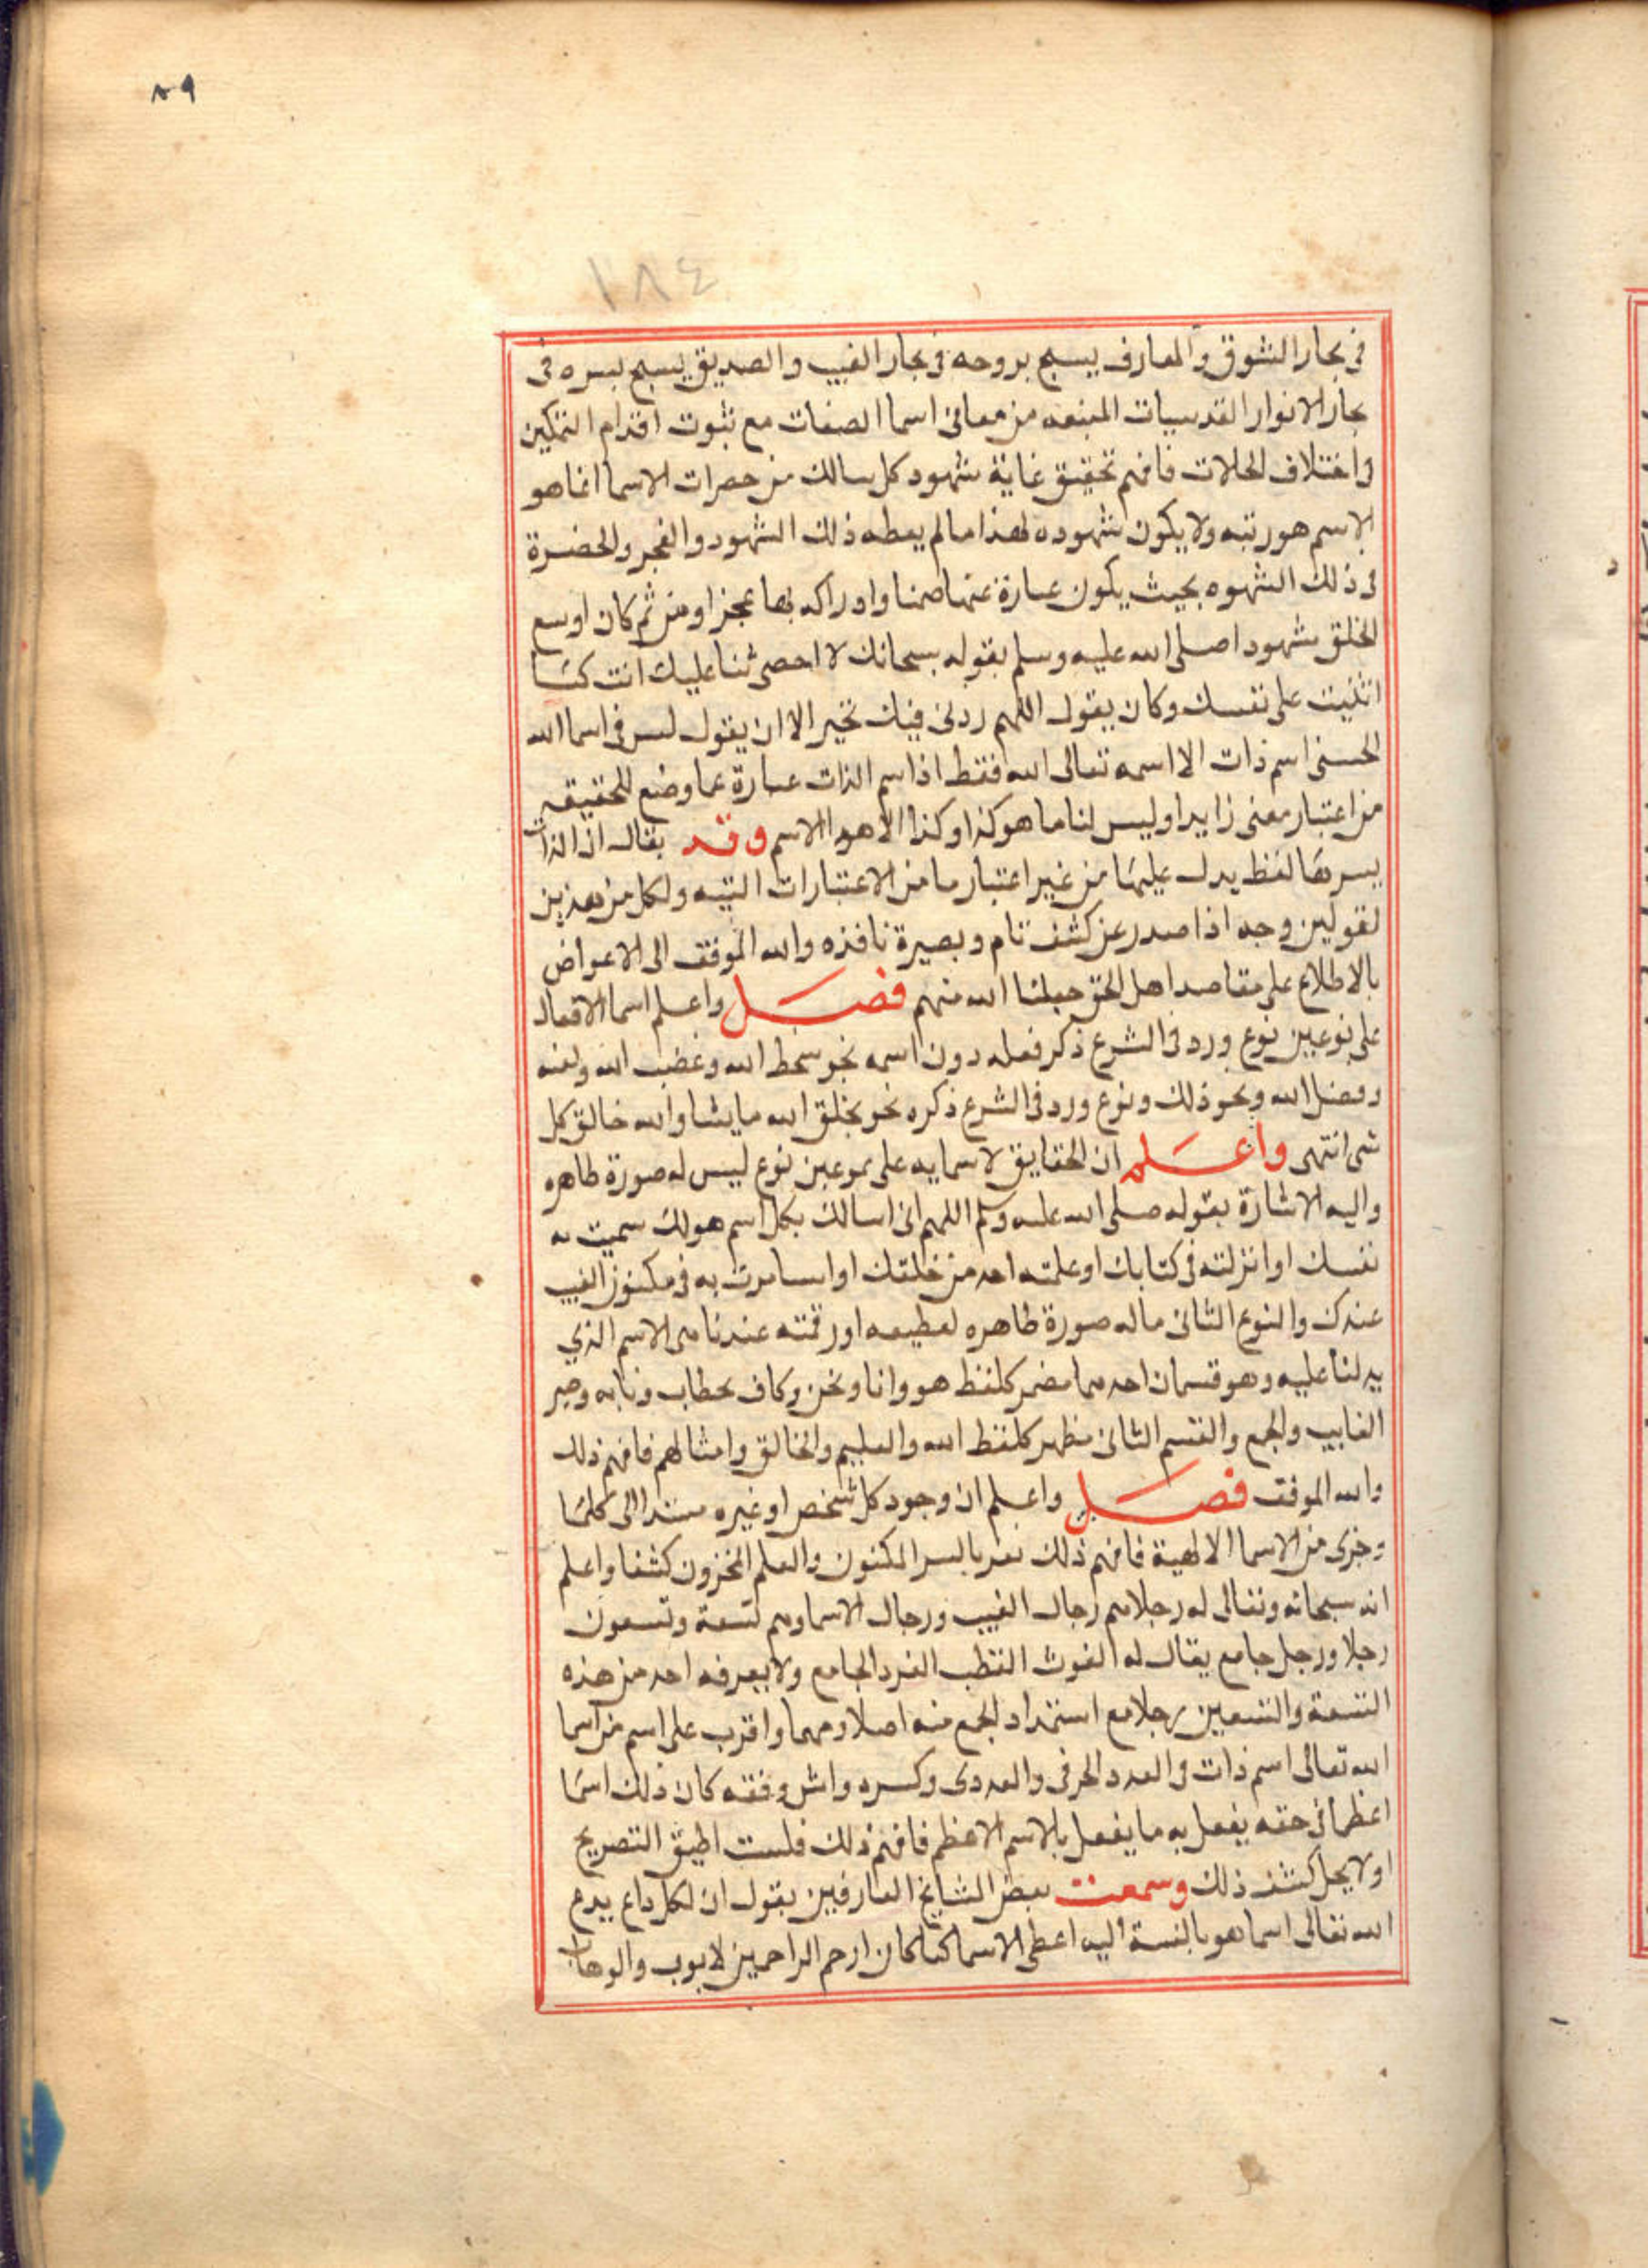 ٨٩
١٨٤
في بحار الشوق والمعارف يسبح بروحه في بحار الغيب والصديق يسبح بسره في
بحار الانوار القدسيات المنبعه من معاني اسما الصفات مع ثبوت اقدام التمكين
في اختلاف الحالات فافهم تحقيق غاية شهود كل سالك من حضرات الاسما انما هو
الاسم هو ربته ولا يكون شهوده لهذا ما لم يعطه ذلك الشهود والفجر والحضرة
في ذلك الشهوه بحيث يكون عبارة عنها صمنا وادراكه بها عجزا ومن ثم كان اوسع
الخلق شهودا صلى الله عليه وسلم بقوله سبحانك لا احصى ثنا عليك انت كما
اثنيت على نفسك وكان يقول اللهم زدني فيك تحير الا ان يقول ليس في اسما الله
الحسنى اسم ذات الا اسمه تعالى الله فقط اذ اسم الذات عبارة عما وضع للحقيقه
من اعتبار معنى زايدا وليس لنا ما هو كذا وكذا الا هو الاسم وقد يقال ان الذات
يسرها لفظ يدل عليها من غير اعتبار ما من الاعتبارات ولكل من هذين
لقولين وجه اذا صدر عن كشف تام وبصيرة نافذه والله الموفق الى الاعواض
بالاطلاع على مقاصد اهل الحق جعلنا الله منهم فصل واعلم اسما الافعال
على نوعين نوع ورد في الشرع ذكر فعله دون اسمه نحو سخط الله وغضب الله ولعنه
وفضل الله ونحو ذلك ونوع ورد في الشرع ذكره نحو يخلق الله ما يشا والله خالق كل
شى انتهى واعلم ان الحقايق لاسمايه على نوعين نوع ليس له صورة ظاهره
واليه الاشارة بقوله صلى الله عليه وسلم اللهم اني اسالك بكل اسم هو لك سميت به
نفسك او انزلته في كتابك او علمته احد من خلقك او استاثرت به في مكنون الغيب
عندك والنوع الثاني ماله صورة ظاهره لعظيمه او رقته عندنا هى الاسم الذي
يدلنا عليه وهو قسمان احدهما مضمر كلفظ هو وانا ونحن وكاف بخطاب وتابه
الغايب والجمع والقسم الثاني مظهر كلفظ الله والعليم والخالق وامثالهم فافهم ذلك
والله الموفق فصل واعلم ان وجود كل شخص او غيره مستندا الى كلما
وجزى من الاسما الالهية فافهم ذلك بالسر المكنون والعلم المخزون كشفا واعلم
انه سبحانه وتعالى له رجلا هم رجال الغيب ورجال الاسما وهم تسعة وتسعون
رجلا ورجل جامع يقال له الغوث القطب الفرد الجامع ولا يعرفه احد من هذه
التسعة والتسعين رجلا مع استمداد الجمع منه اصلا ومهما واقرب على اسم من اسما
الله تعالى اسم ذات في العدد الحرفي والعددى وكسره وفقه كان ذلك اسما
اعظما في حقه يفعل به ما يفعل بالاسم الاعظم فافهم ذلك فلست اطيق التصريح
اولا يحل كشف ذلك وسمعت بعض المشايخ العارفين يقول ان لكل داع يدع
الله تعالى اسما هو بالنسبة اليه اعظم الاسما كما كان ارحم الراحمين لايوب والوهاب